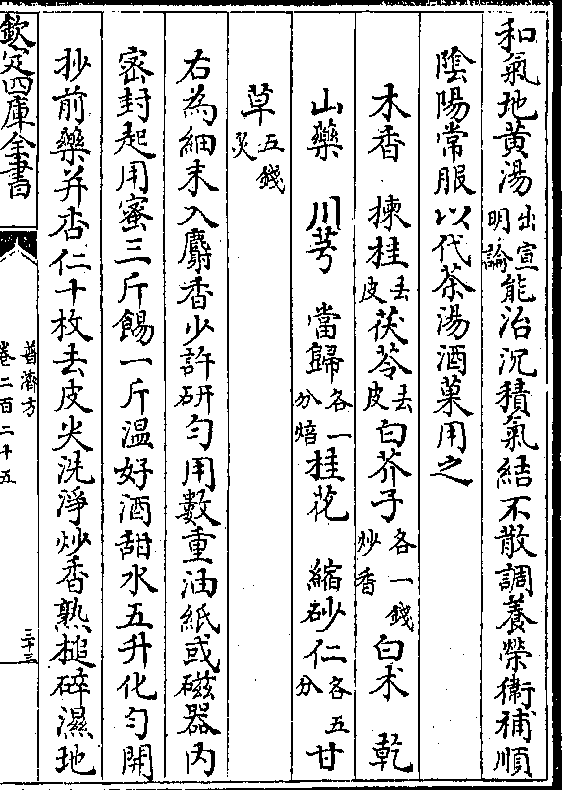 和氣地黄湯出宣明論能治沉積氣結不散調養榮衛補順
陰陽常服以代茶湯酒菓用之
木香 揀桂去皮茯苓去皮白芥子各一錢炒香白术 乾
山藥 川芎 當歸各一分焙桂花 縮砂仁各五分甘
草五錢炙
右為細末入麝香少許研勻用數重油紙或磁器内
密封起用蜜三斤餳一斤温好酒甜水五升化勻開
抄前藥并杏仁十枚去皮尖洗淨炒香熟搥碎濕地
欽定四庫全書
普濟方
卷二百二十五
三十三